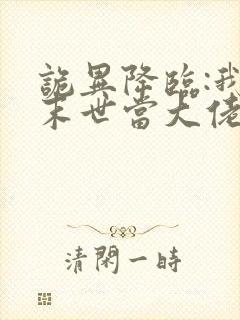 詭異降臨:我
末世當大佬
清閑一時